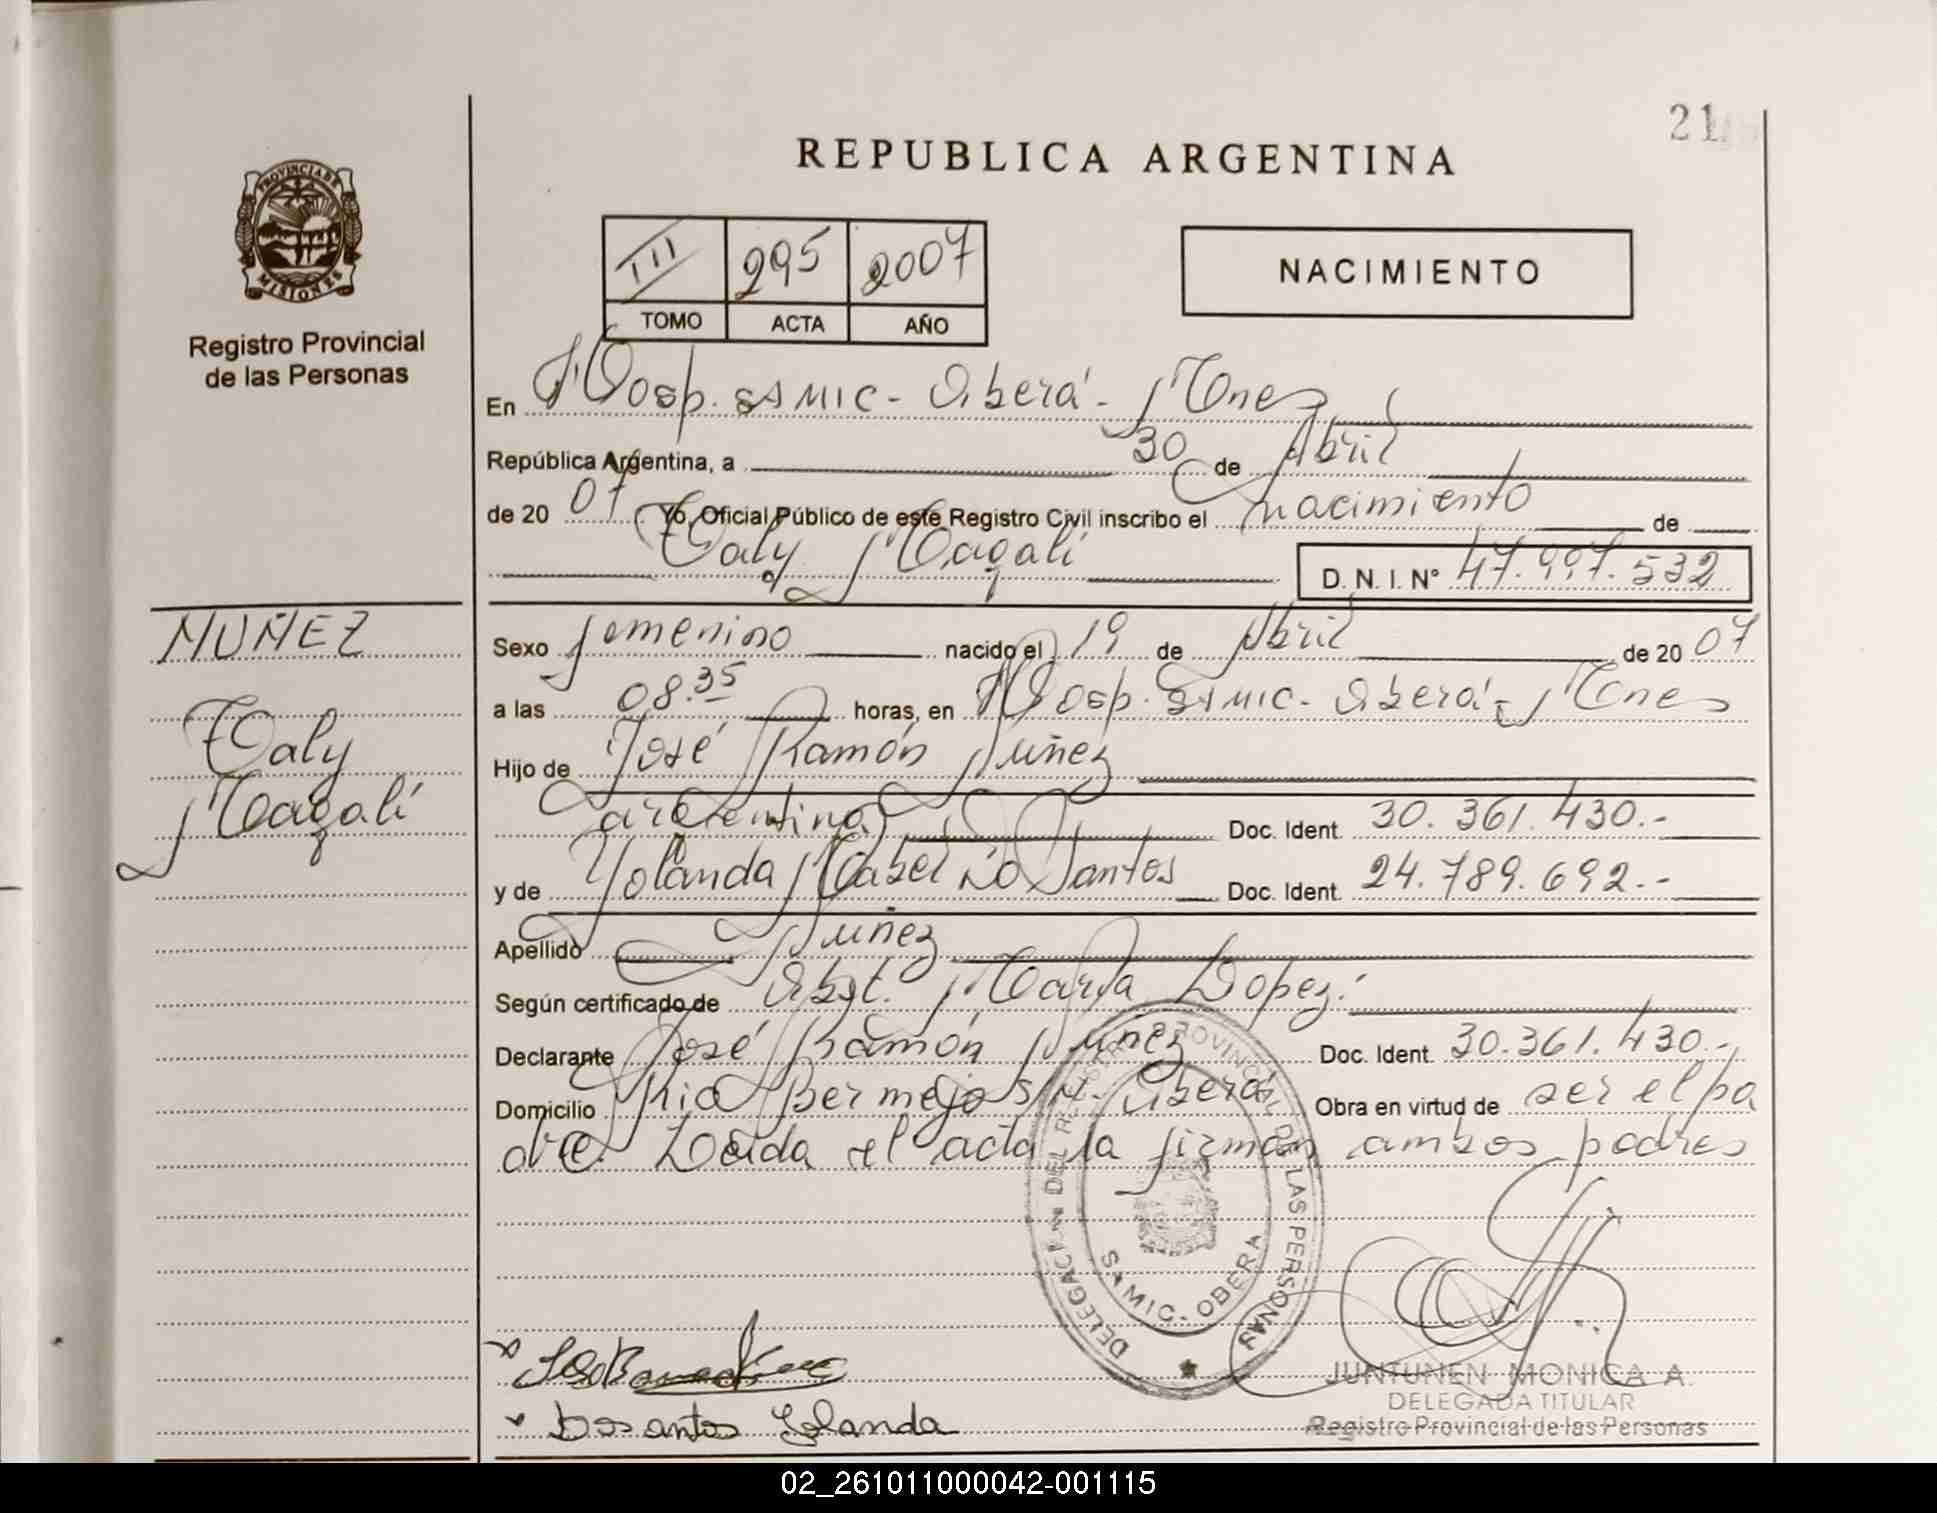 21
REPUBLICA ARGENTINA
PROVINCIA DE
MISIONES
Registro Provincial
de las Personas
III 295 2007
TOMO ACTA AÑO
NACIMIENTO
En Hosp. SAMIC - Oberá - Mnes
República Argentina, a 30 de Abril
de 20 07 Yo, Oficial Público de este Registro Civil inscribo el nacimiento de
Taly Magalí D.N.I. N° 47.997.532
NUÑEZ
Taly
Magalí
Sexo femenino nacido el 19 de Abril de 20 07
a las 08.35 horas, en Hosp. SAMIC - Oberá - Mnes
Hijo de José Ramón Núñez
argentina Doc. Ident. 30.361.430.-
y de Yolanda Mabel Do Santos Doc. Ident. 24.789.692.-
Apellido Núñez
Según certificado de Obst. María Lopez.
Declarante José Ramón Núñez Doc. Ident. 30.361.430.-
Domicilio Rio Bermejo S/N - Oberá Obra en virtud de ser el pa
dre. Leída el acta la firman ambos padres
DELEGACION DEL REGISTRO PROVINCIAL DE LAS PERSONAS
SAMIC - OBERA
Dos antos Yolanda
JUNTUNEN MONICA A.
DELEGADA TITULAR
Registro Provincial de las Personas
02_261011000042-001115